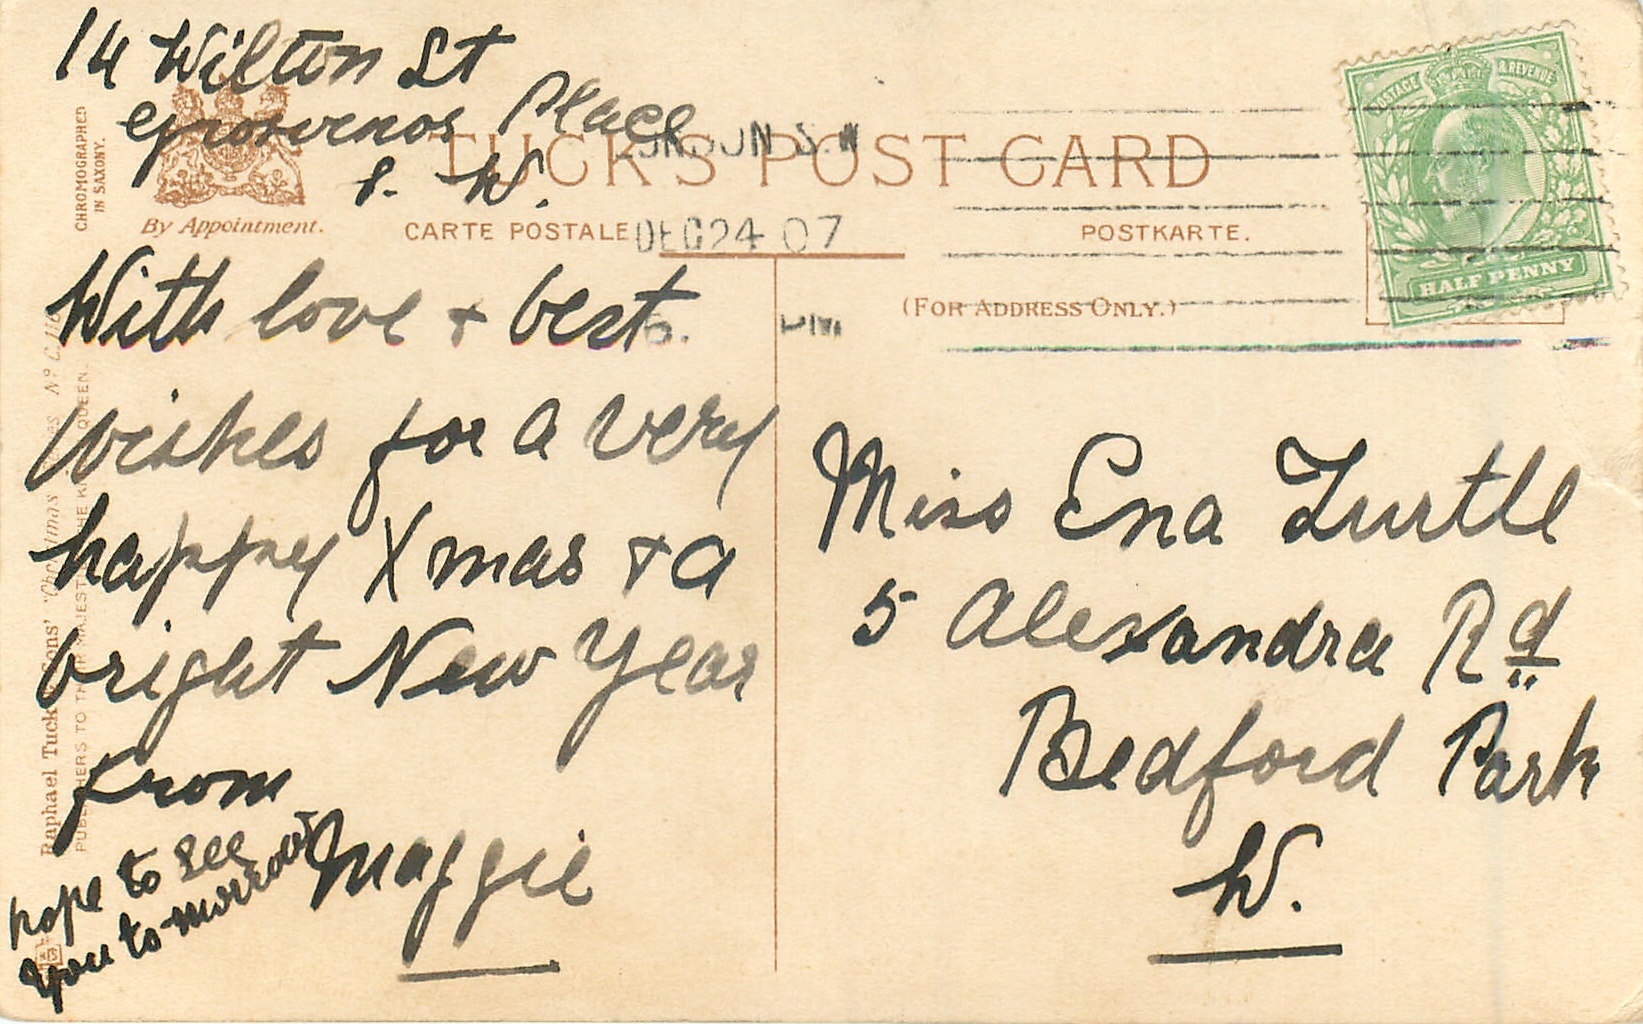 14 Wilton St
Grosvenor Place
S. W.
CHROMOGRAPHED
IN SAXONY.
By Appointment.
TUCK'S POST CARD
CARTE POSTALE
POSTKARTE.
(FOR ADDRESS ONLY.)
S.W
DEC 24 07
POSTAGE & REVENUE
HALF PENNY
With love + best
wishes for a very
happy Xmas + a
bright New Year
from
Maggie
hope to see
you to-morrow
Miss Ena Turtle
5 Alexandra Rd
Bedford Park
W.
Raphael Tuck Sons' "Christmas Nº C
PUBLISHERS TO THEIR MAJESTIES THE KING QUEEN.